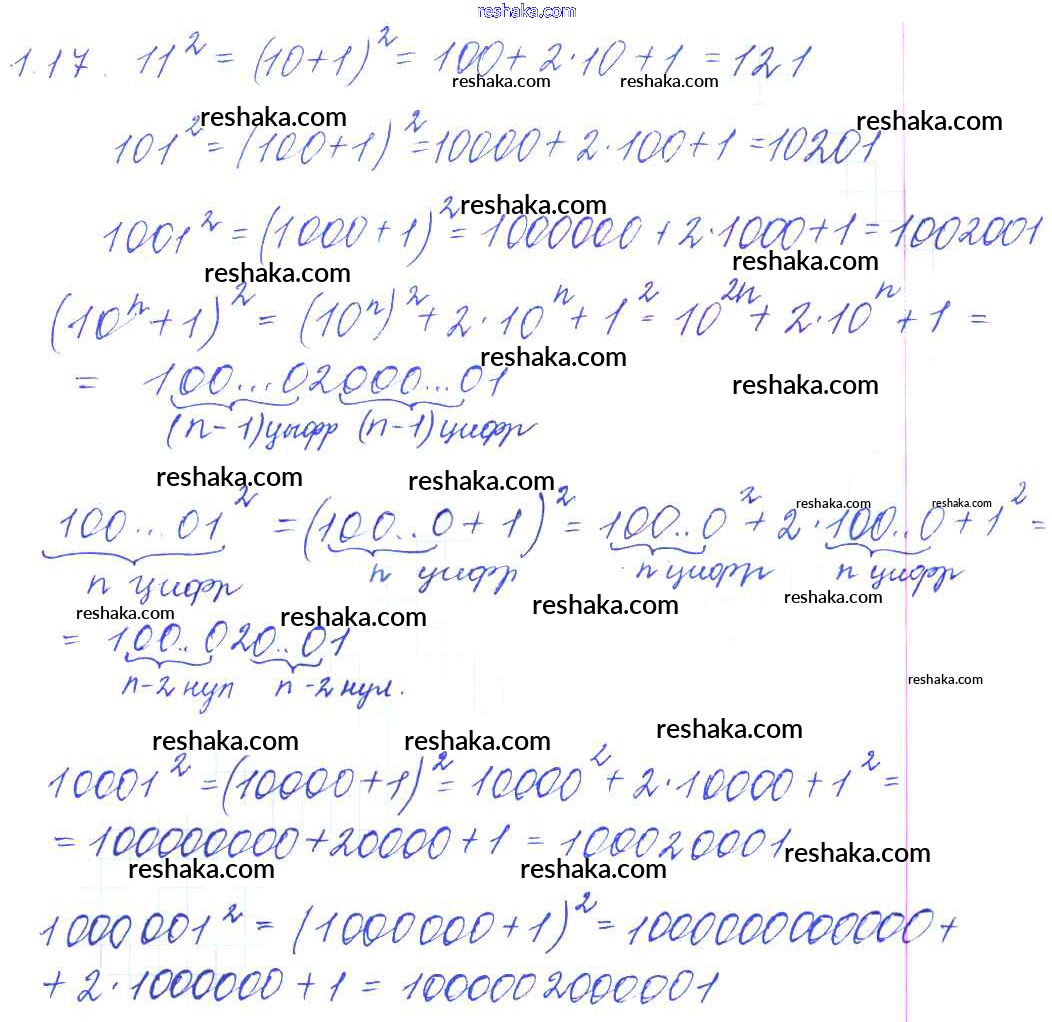 reshaka.com
1.17. 11² = (10+1)² = 100 + 2·10 + 1 = 121
reshaka.com reshaka.com
reshaka.com reshaka.com
101² = (100+1)² = 10000 + 2·100 + 1 = 10201
reshaka.com
1001² = (1000 + 1)² = 1000000 + 2·1000 + 1 = 1002001
reshaka.com reshaka.com
(10ⁿ + 1)² = (10ⁿ)² + 2·10ⁿ + 1² = 10²ⁿ + 2·10ⁿ + 1 =
reshaka.com reshaka.com
= 100...02000...01
(n-1) цифр (n-1) цифр
reshaka.com reshaka.com reshaka.com reshaka.com
100...01² = (100..0 + 1)² = 100..0² + 2·100..0 + 1² =
n цифр n цифр n цифр n цифр
reshaka.com reshaka.com reshaka.com reshaka.com
= 100..020..01
n-2 нул n-2 нул.
reshaka.com
reshaka.com reshaka.com reshaka.com
10001² = (10000 + 1)² = 10000² + 2·10000 + 1² =
= 100000000 + 20000 + 1 = 100020001
reshaka.com reshaka.com reshaka.com
1000001² = (1000000 + 1)² = 1000000000000 +
+ 2·1000000 + 1 = 1000002000001